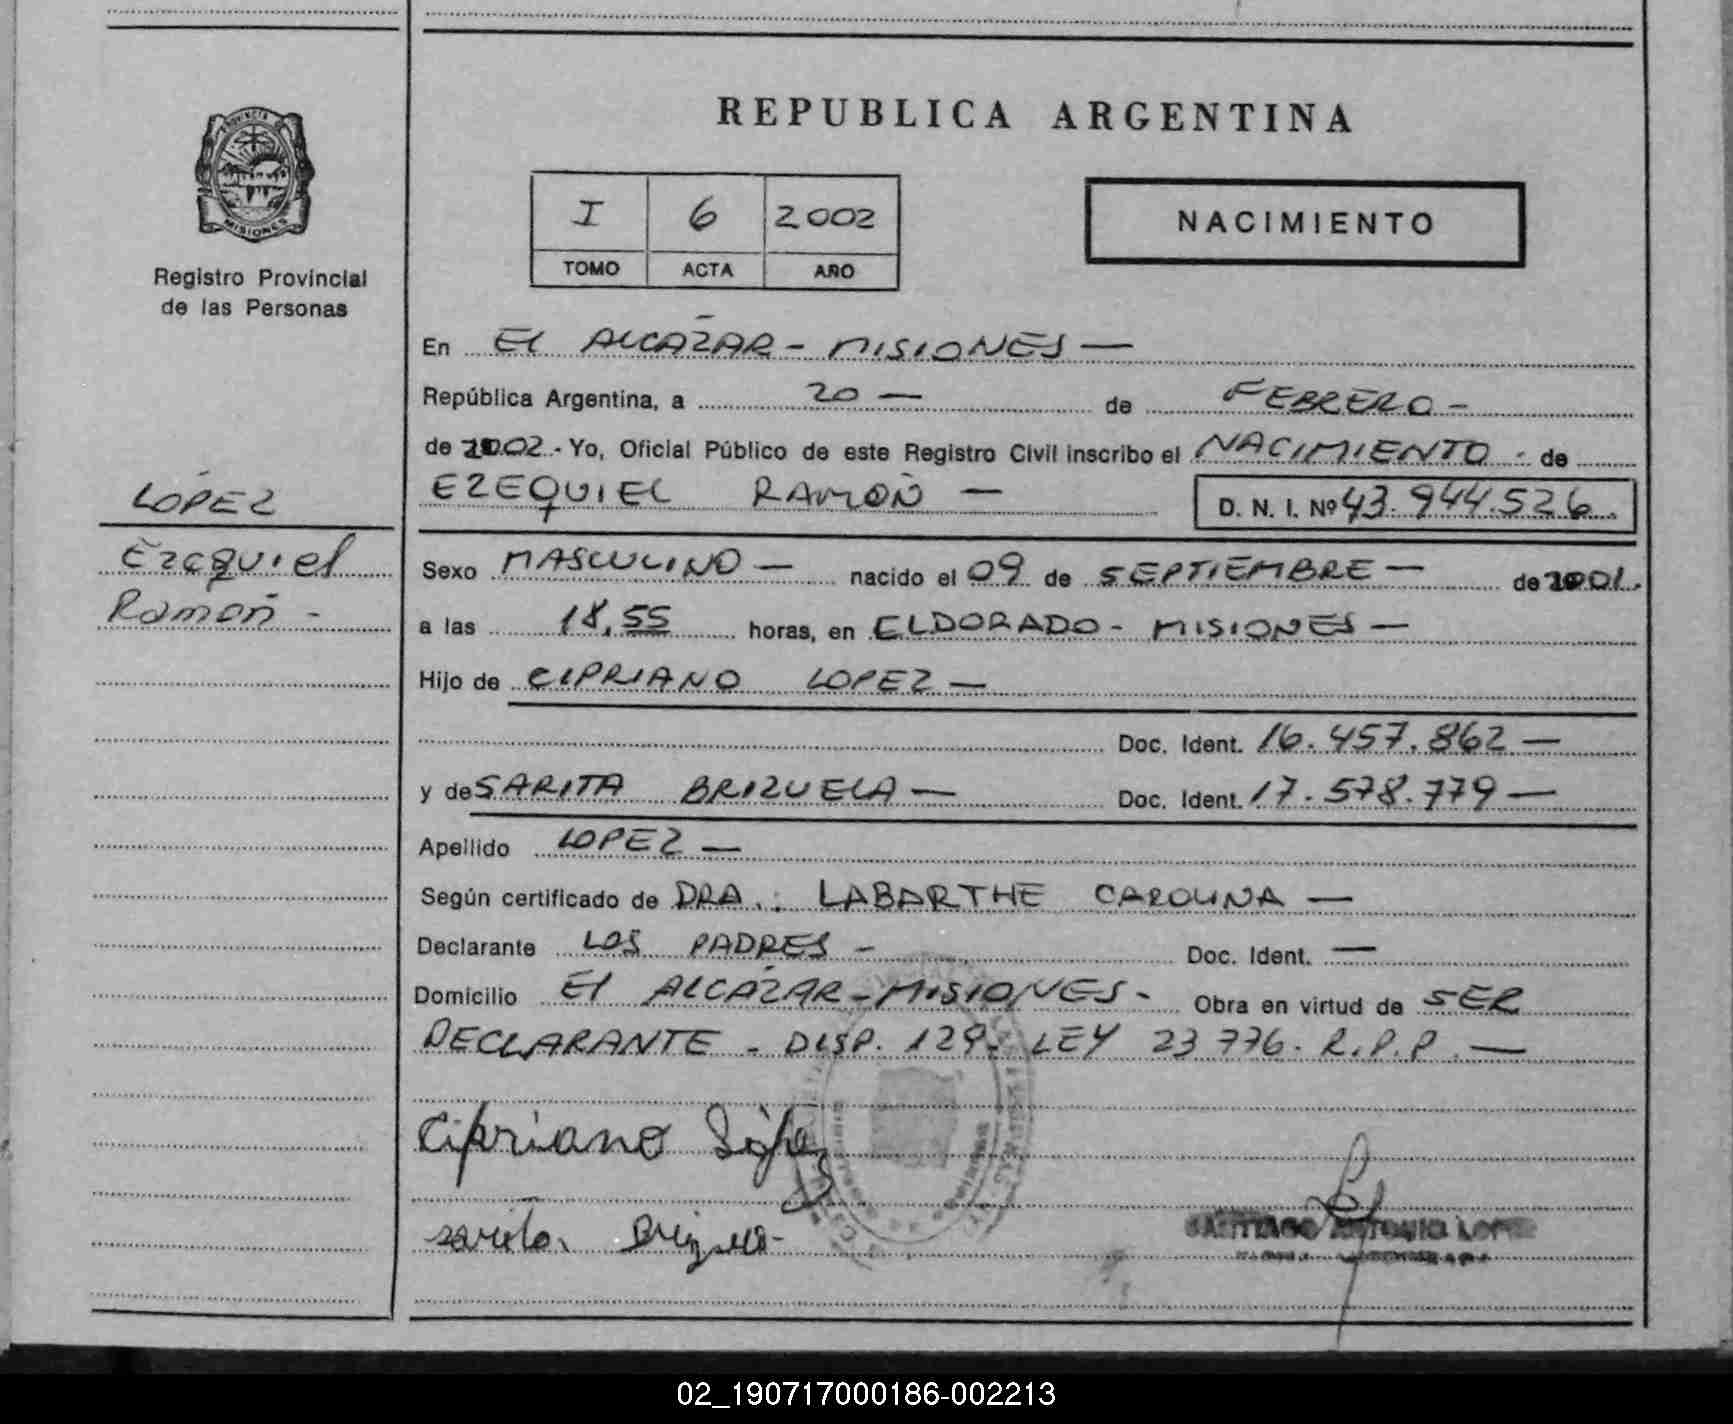 REPUBLICA ARGENTINA
PROVINCIA
MISIONES
Registro Provincial
de las Personas
I 6 2002
TOMO ACTA AÑO
NACIMIENTO
En EL ALCAZAR - MISIONES —
República Argentina, a 20 — de FEBRERO -
de 2002 - Yo, Oficial Público de este Registro Civil inscribo el NACIMIENTO - de
EZEQUIEL RAMON — D. N. I. Nº 43.944.526.
LOPEZ
Ezequiel
Ramon -
Sexo MASCULINO — nacido el 09 de SEPTIEMBRE — de 2001.
a las 18,55 horas, en ELDORADO - MISIONES —
Hijo de CIPRIANO LOPEZ —
Doc. Ident. 16.457.862 —
y de SARITA BRIZUELA — Doc. Ident. 17.578.779 —
Apellido LOPEZ —
Según certificado de DRA.: LABARTHE CAROLINA —
Declarante LOS PADRES - Doc. Ident. —
Domicilio El ALCAZAR - MISIONES - Obra en virtud de SER
DECLARANTE - DISP. 129 - LEY 23776 - R.P.P. —
Cipriano López
SANTIAGO ANTONIO LOPEZ
02_190717000186-002213